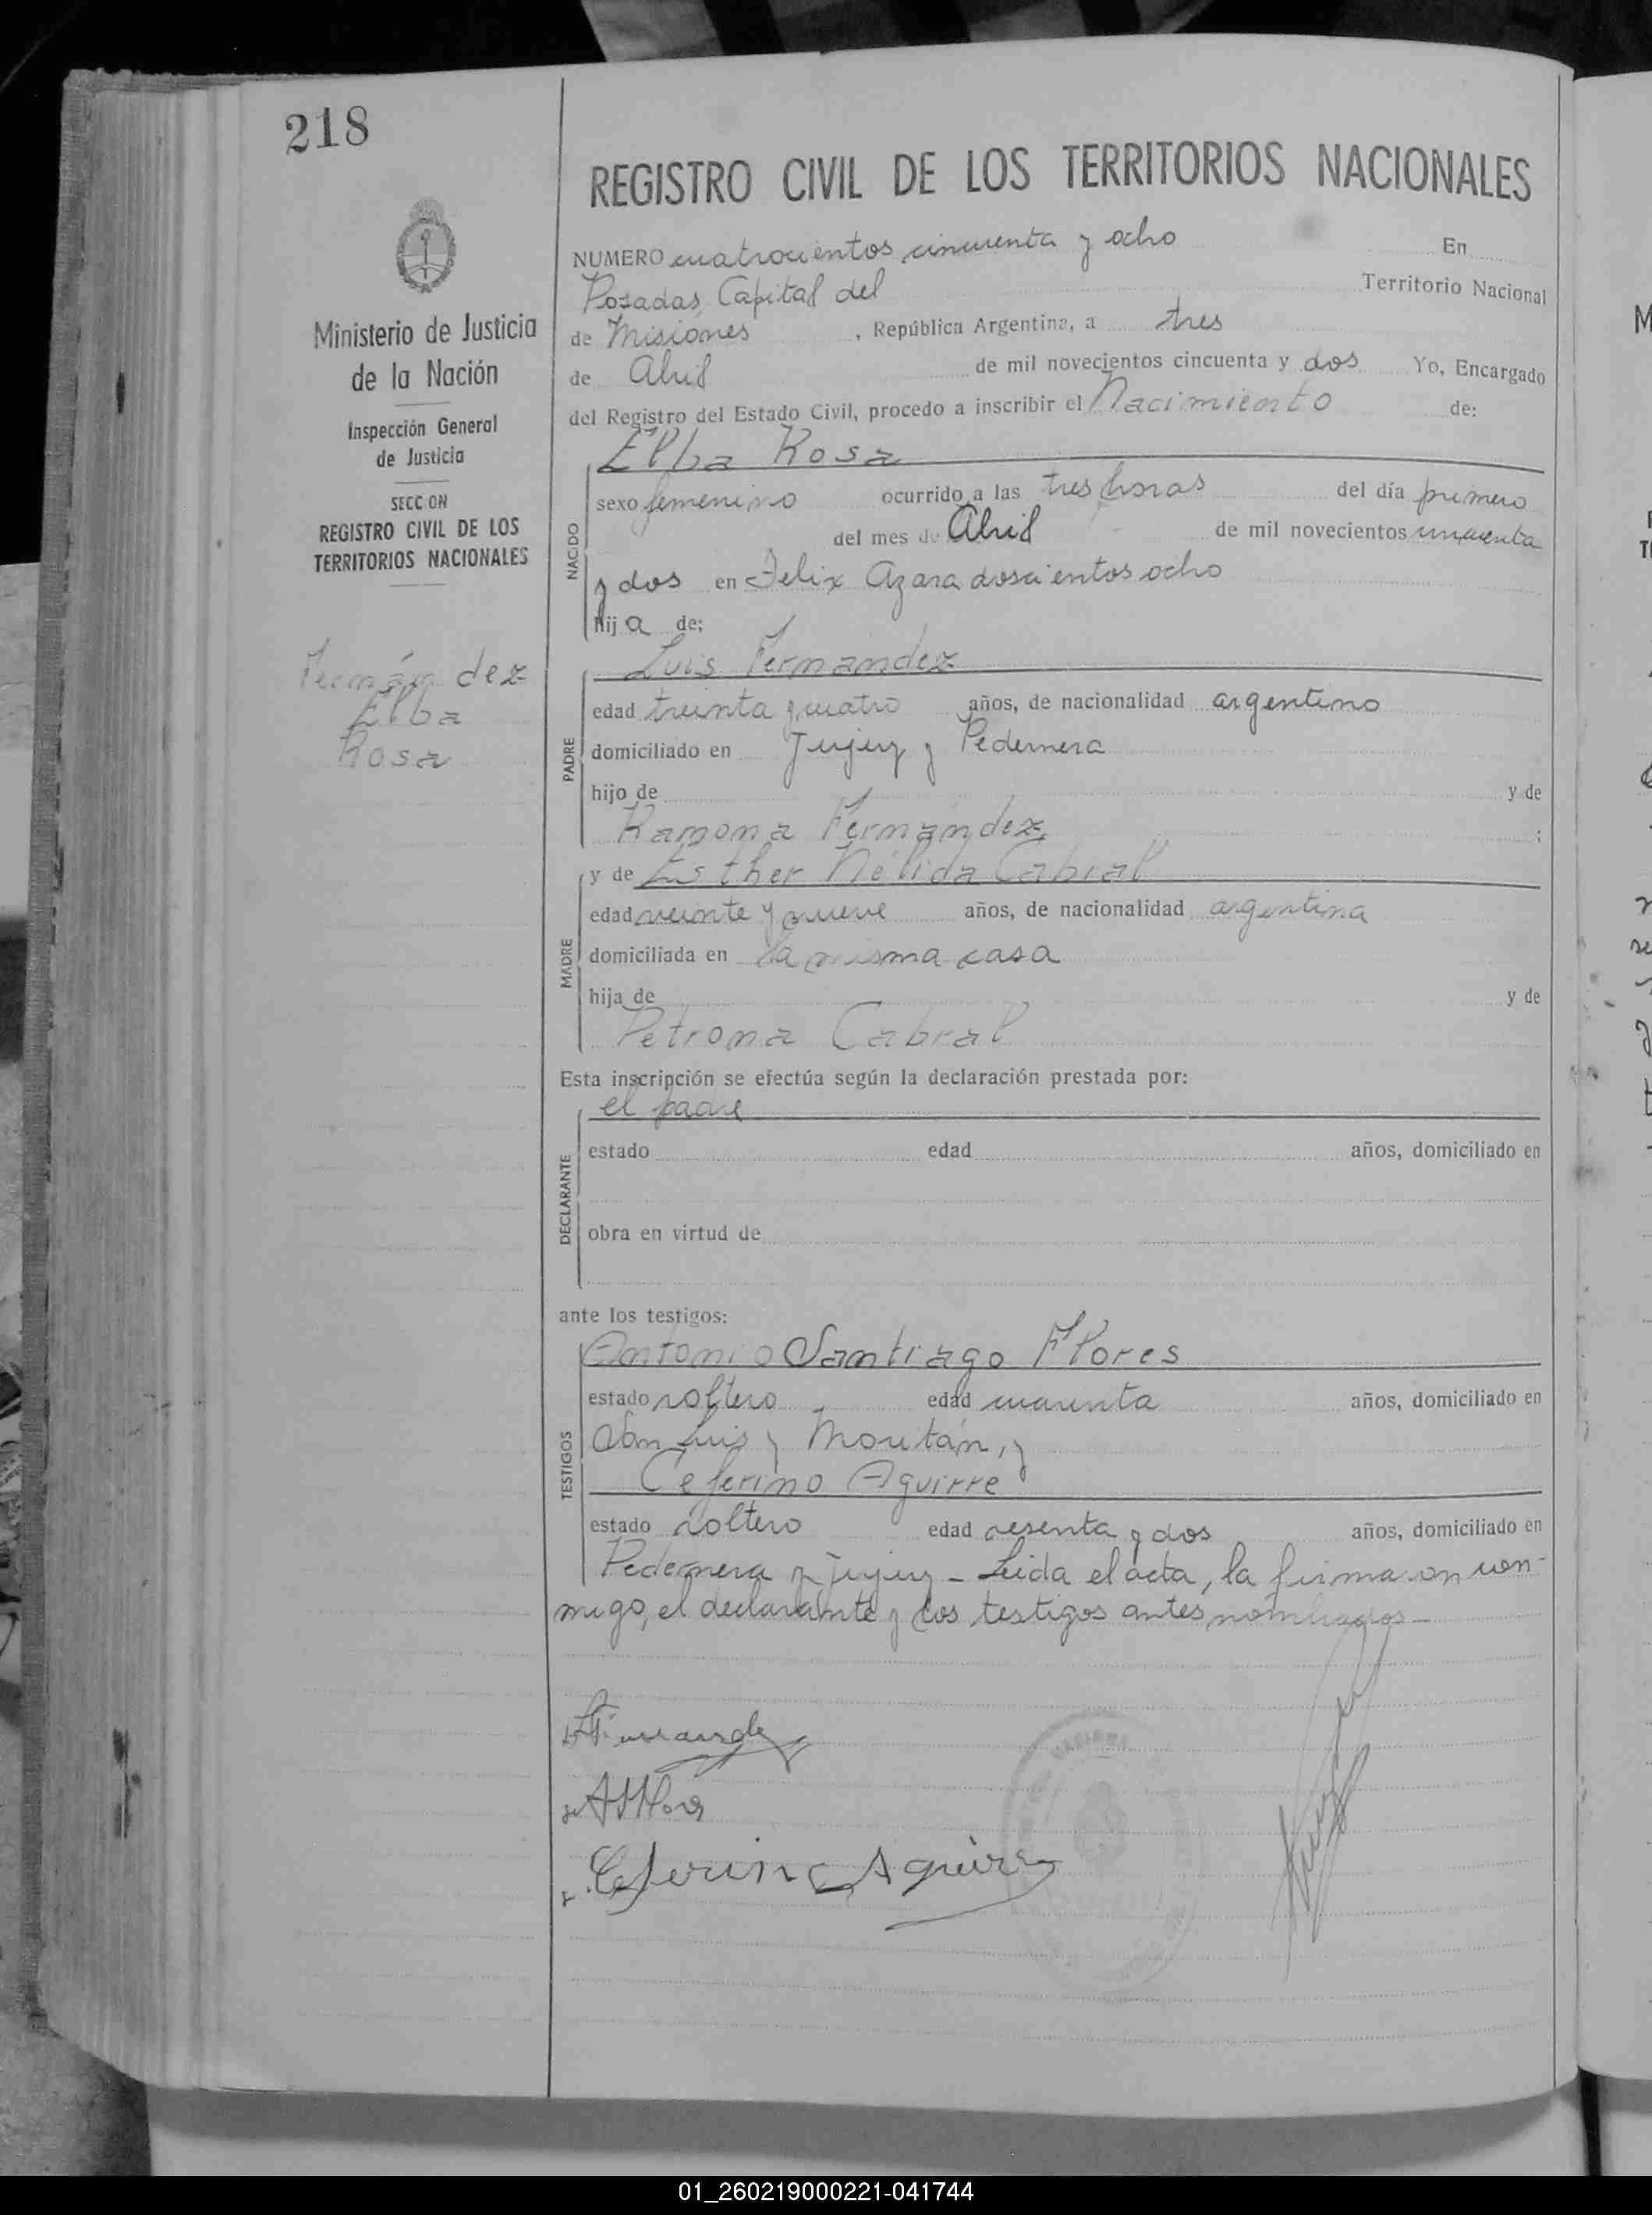 218
REGISTRO CIVIL DE LOS TERRITORIOS NACIONALES
Ministerio de Justicia
de la Nación
Inspección General
de Justicia
SECCION
REGISTRO CIVIL DE LOS
TERRITORIOS NACIONALES
Fernández
Elba
Rosa
NUMERO cuatrocientos cincuenta y ocho En
Posadas, Capital del Territorio Nacional
de Misiones , República Argentina, a tres
de Abril de mil novecientos cincuenta y dos Yo, Encargado
del Registro del Estado Civil, procedo a inscribir el Nacimiento de:
Elba Rosa
NACIDO
sexo femenino ocurrido a las tres horas del día primero
del mes de Abril de mil novecientos cincuenta
y dos en Felix Azara doscientos ocho
hija de:
Luis Fernández
PADRE
edad treinta y cuatro años, de nacionalidad argentino
domiciliado en Jujuy y Pedernera
hijo de y de
Ramona Fernández ;
y de Esther Nélida Cabral
MADRE
edad veinte y nueve años, de nacionalidad argentina
domiciliada en la misma casa
hija de y de
Petrona Cabral
Esta inscripción se efectúa según la declaración prestada por:
el padre
DECLARANTE
estado edad años, domiciliado en
obra en virtud de
ante los testigos:
Antonio Santiago Flores
TESTIGOS
estado soltero edad cuarenta años, domiciliado en
San Luis y Moután, y
Ceferino Aguirre
estado soltero edad sesenta y dos años, domiciliado en
Pedernera y Jujuy - Leida el acta, la firmaron con-
migo, el declarante y los testigos antes nombrados -
Ceferino Aguirre
01_260219000221-041744